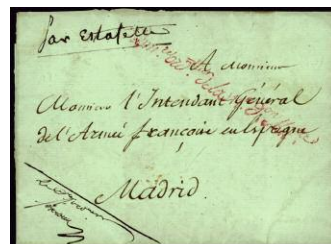 par Estafette
A Monsieur
Monsieur l'Intendant Général
de l'Armée françoise en Espagne
Madrid.